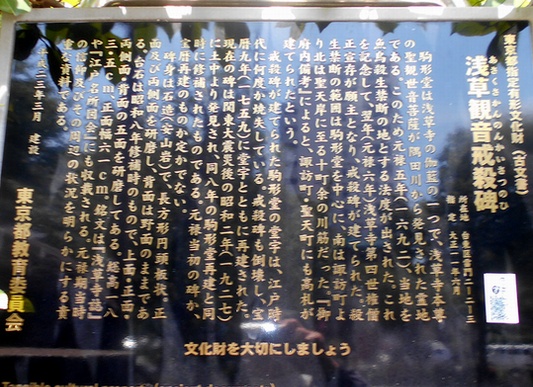 東京都指定有形文化財（古文書）
あさくさかんのんかいさつのひ
浅草観音戒殺碑
所在地 台東区雷門二―二―三
指定 大正一一年六月
駒形堂は浅草寺の伽藍の一つで、浅草寺本尊
の聖観世音菩薩が隅田川から発見された霊地
である。このため元禄五年（一六九二）、当地を
魚鳥殺生禁断の地とする法度が出された。これ
を記念して、翌年（元禄六年）浅草寺第四世権僧
正宣存が願主となり、戒殺碑が建てられた。殺
生禁断の範囲は駒形堂を中心に、南は諏訪町よ
り北は聖天岸に至る十町余の川筋だった。『御
府内備考』によると、諏訪町・聖天町にも高札が
建てられたという。
戒殺碑が建てられた駒形堂の堂宇は、江戸時
代に何度か焼失している。戒殺碑も倒壊し、宝
暦九年（一七五九）に堂宇とともに再建された。
現在の碑は関東大震災後の昭和二年（一九二七）
に土中より発見され、同八年の駒形堂再建と同
時に修補されたものである。元禄当初の碑か、
宝暦再建のものか定かでない。
碑身は石造（安山岩）で、長方形円頭板状。正
面及び両側面を研磨し、背面は野面のままであ
る。台石は昭和八年修補時のもので、上面・正面・
両側面・背面の五面を研磨してある。総高一八
三・五cm、正面幅六一cm。銘文は『浅草寺誌』
や『江戸名所図会』にも収載される。元禄期当時
の信仰及びその周辺の状況を明らかにする貴
重な資料である。
平成二三年三月 建設
東京都教育委員会
文化財を大切にしましょう